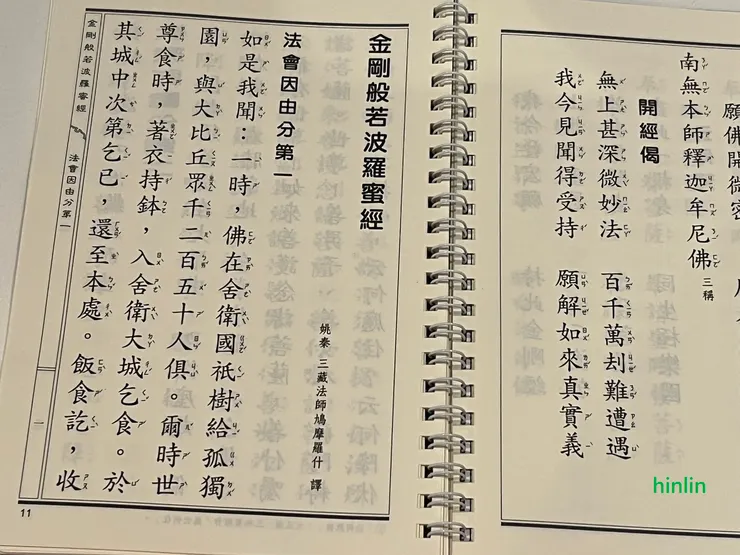 願佛開微密
南無本師釋迦牟尼佛 三稱
開經偈
無上甚深微妙法 百千萬刦難遭遇
我今見聞得受持 願解如來真實義
金剛般若波羅蜜經
姚秦 三藏法師鳩摩羅什 譯
法會因由分第一
如是我聞：一時，佛在舍衛國祇樹給孤獨
園，與大比丘眾千二百五十人俱。爾時世
尊食時，著衣持鉢，入舍衛大城乞食。於
其城中次第乞已，還至本處。飯食訖，收
金剛般若波羅蜜經 法會因由分第一 一
11
hinlin